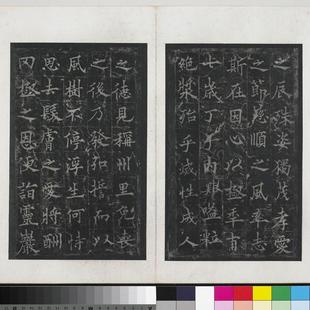 之辰殊姿獨茂孝愛
之節慈順之風率志
斯在因心以極年有
七歲丁于內艱嗌粒
絕漿殆乎滅性成人
之德見稱州里免喪
之後乃發弘誓而以
風樹不停浮生何恃
思去髮膚之愛將酬
罔極之恩更詣靈巖